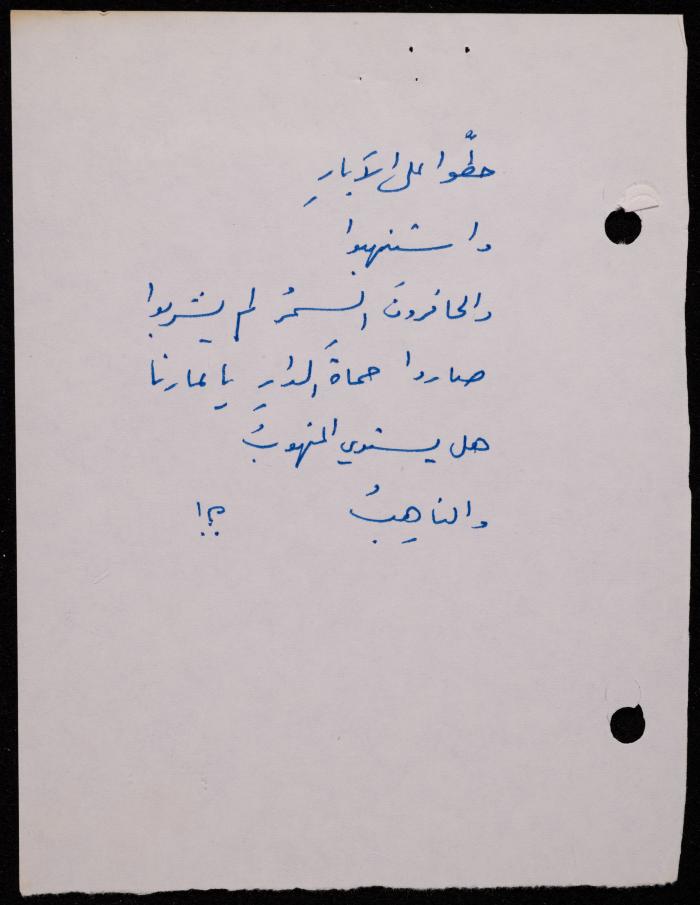 حطّوا على الآبارِ
واستنهبوا
والحافرونَ السمرُ لم يشربوا
صاروا حماةَ الدارِ يا عارنا
هل يستوي المنهوبُ
والناهِبُ ؟!